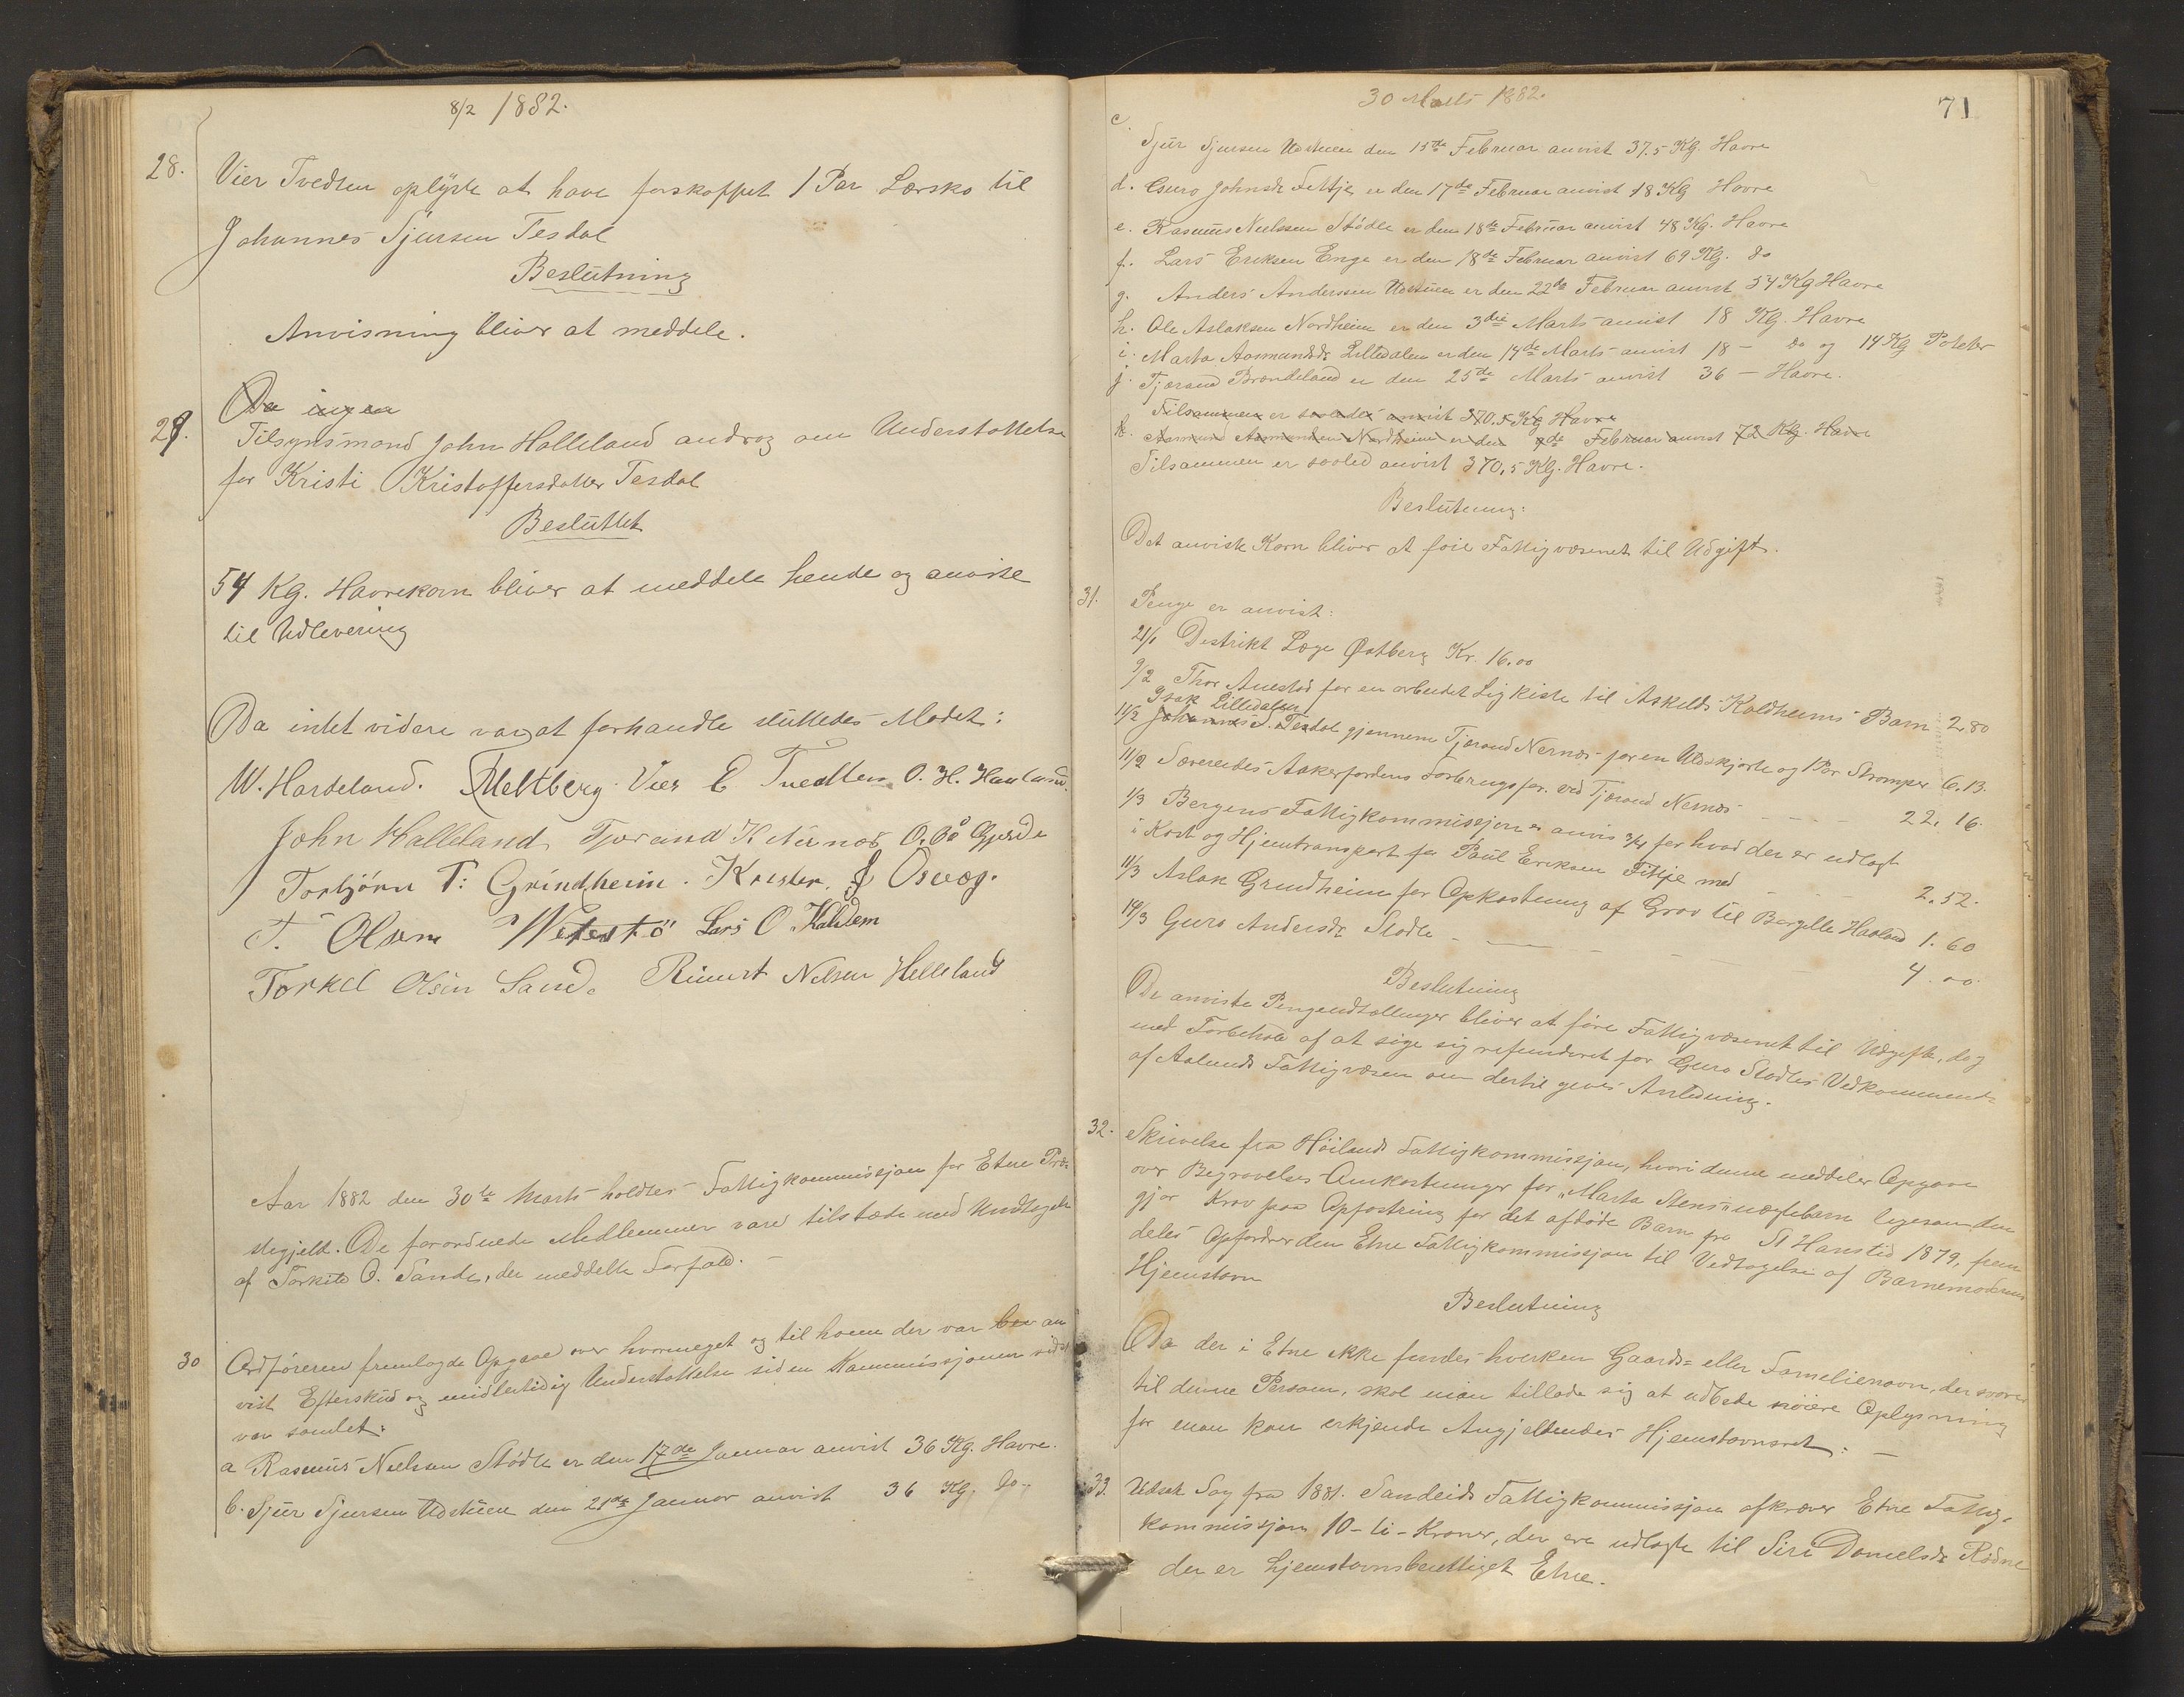 8/2 1882.
28. Vier Tvedten oplyste at have forskaffet 1 Par Lærsko til
Johannes Sjursen Tesdal
Beslutning
Anvisning bliver at meddele.
Da ingen
29. Tilsynsmand John Halleland androg om Understøttelse
for Kristi Kristoffersdatter Tesdal
Besluttet
54 Kg. Havrekorn bliver at meddele hende og anvise
til Udlevering
Da intet videre var at forhandle sluttedes Mødet:
W. Hardeland. Meltberg. Vier E Tvedten O. H. Hauland.
John Halleland Tjorand K Nernes O. Gjerde
Torbjörn T: Grindheim. Krister. J Osvog.
T. Olsen Lars O. Kaldem
Torkel Olsen Sand. Rimert Nelsen Helleland
Aar 1882 den 30te Marts holdtes Fattigkommissjon for Etne Præ-
stegjeld. De forordnede Medlemmer vare tilstæde med Undtagelse
af Torkild O. Sande, der meddelte Forfald.
30 Ordføreren fremlagde Opgave over hvormeget og til hvem der var bev an
vist Efterskud og midlertidig Understøttelse siden Kommissjonen sidst
var samlet:
a Rasmus Nielsen Stødle er den 17de Januar anvist 36 Kg. Havre.
b. Sjur Sjursen Udstuen den 21de Januar anvist 36 Kg. Do.
30 Marts 1882.
71
c. Sjur Sjursen Udstuen den 15de Februar anvist 37.5 Kg. Havre
d. Guro Johnsdr Fettje er den 17de Februar anvist 18 Kg Havre
e. Rasmus Neelssen Stødle er den 18de Februar anvist 48 Kg. Havre
f. Lars Eriksen Enge er den 18de Februar anvist 69 Kg. do
g. Anders Anderssen Udstuen er den 22de Februar anvist 54 Kg Havre
h. Ole Aslaksen Nordheim er den 3die Marts anvist 18 Kg. Havre
i. Marta Aamundsdr Lilledalen er den 14de Marts anvist 18 – do og 14 Kg Poteter
j. Tjærand Brendeland er den 25de Marts anvist 36 – Havre.
Tilsammen er saaledes anvist 370.5 Kg Havre
k. Aamund Aamundsen Nordheim er den de Februar anvist 72 Kg. Havre
Tilsammen er saaled anvist 370,5 Kg. Havre.
Beslutning:
Det anviste Korn bliver at føie Fattigvæsenet til Udgift.
31. Penge er anvist:
21/1 Destrikt Læge Østberg Kr. 16.00
9/2 Thor Auestad for en arbeidet Ligkiste til Askelds Koldheims Barn 2.80
Isak Lilledalen
11/2 Johannes S. Tesdal gjennem Tjærand Nernæs for en Uldskjorte og 1 Par Strømper 6.13.
11/2 Særereides Aakerfjordens Forbrugsfor. ved Tjerand Nernæs – – – – 22.16.
1/3 Bergens Fattigkommissjon er anvis for hvad der er udlagt
i Kost og Hjemtransport for Paul Eriksen Fitje med – – – 2.52.
11/3 Aslak Grindheim for Opkastning af Grav til Haaland 1.60
14/3 Guro Andersdr Stødle – – – 4.00.
Beslutning
De anviste Pengeudtællinger bliver at føre Fattigvæsenet til Udgifte, dog
med Forbehold af at søge sig refunderet for Guro Stødles Vedkommende
af Aalunds Fattigvæsen om dertil gives Anledning.
32. Skrivelse fra Höilands Fattigkommissjon, hvori denne meddeler Opgave
over Begravelses Omkostninger for "Marta Stens" uægtebarn ligesom den
gjør Krav paa Opfostring for det afdøde Barn fra St Hanstid 1879, frem
deles Opfordrer den Etne Fattigkommissjon til Vedtagelse af Barnemoderens
Hjemstavn
Beslutning
Da der i Etne ikke findes hverken Gaards- eller Familienavn, der svarer
til denne Person, skal man tillade sig at udbede nöiere Oplysning
før man kan erkjende Angjeldendes Hjemstavnsret. –
33. Udsat Sag fra 1881. Sandeids Fattigkommissjon afkræver Etne Fattig-
kommissjon 10 – ti – Kroner, der ere udlagte til Siri Danielsdr Rödne
der er hjemstavnsberettiget Etne.